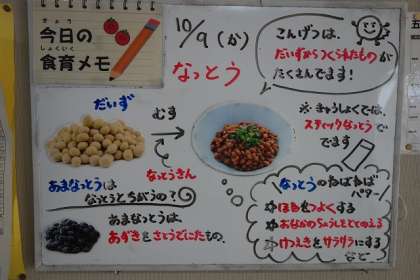 きょう
今日の
しょくいく
食育メモ
10/9(か)
なっとう
こんげつは、
だいずからつくられたものが
たくさんでます!
だいず
むす
なっとうきん
※きゅうしょくでは、
スティックなっとうで
でます
あまなっとうは
なっとうとちがうの?
あまなっとうは、
あずきをさとうでにたもの。
なっとうのねばねば
パワー
☆ほねをつよくする
☆おなかのちょうしをととのえる
☆けつえきをサラサラにする
など